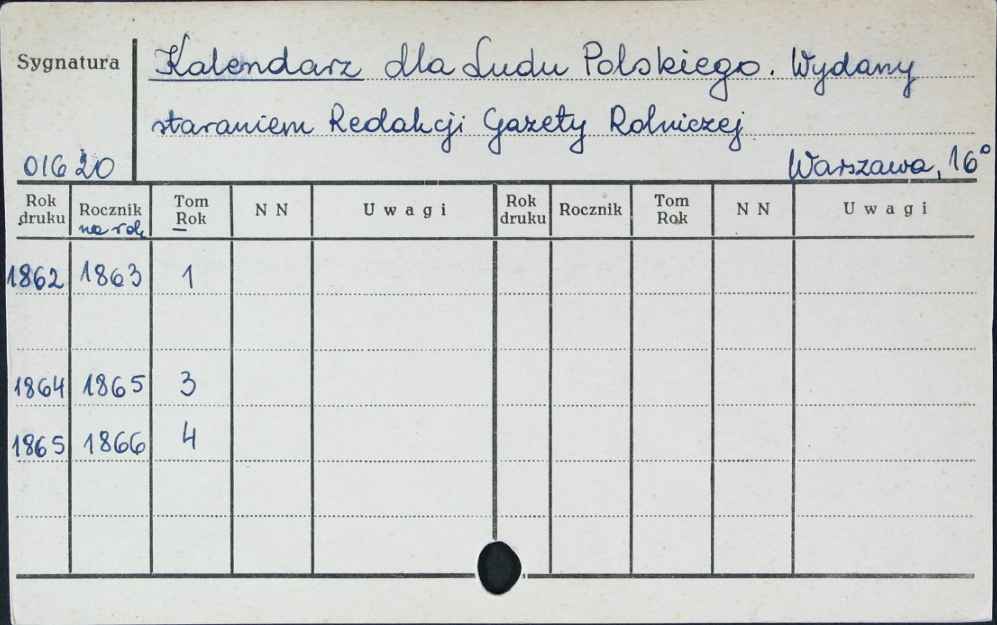 Sygnatura
Kalendarz dla Ludu Polskiego. Wydany
staraniem Redakcji Gazety Rolniczej
01620
Warszawa, 16°
Rok druku Rocznik na rok Tom Rok N N Uwagi Rok druku Rocznik Tom Rok N N Uwagi
1862 1863 1
1864 1865 3
1865 1866 4